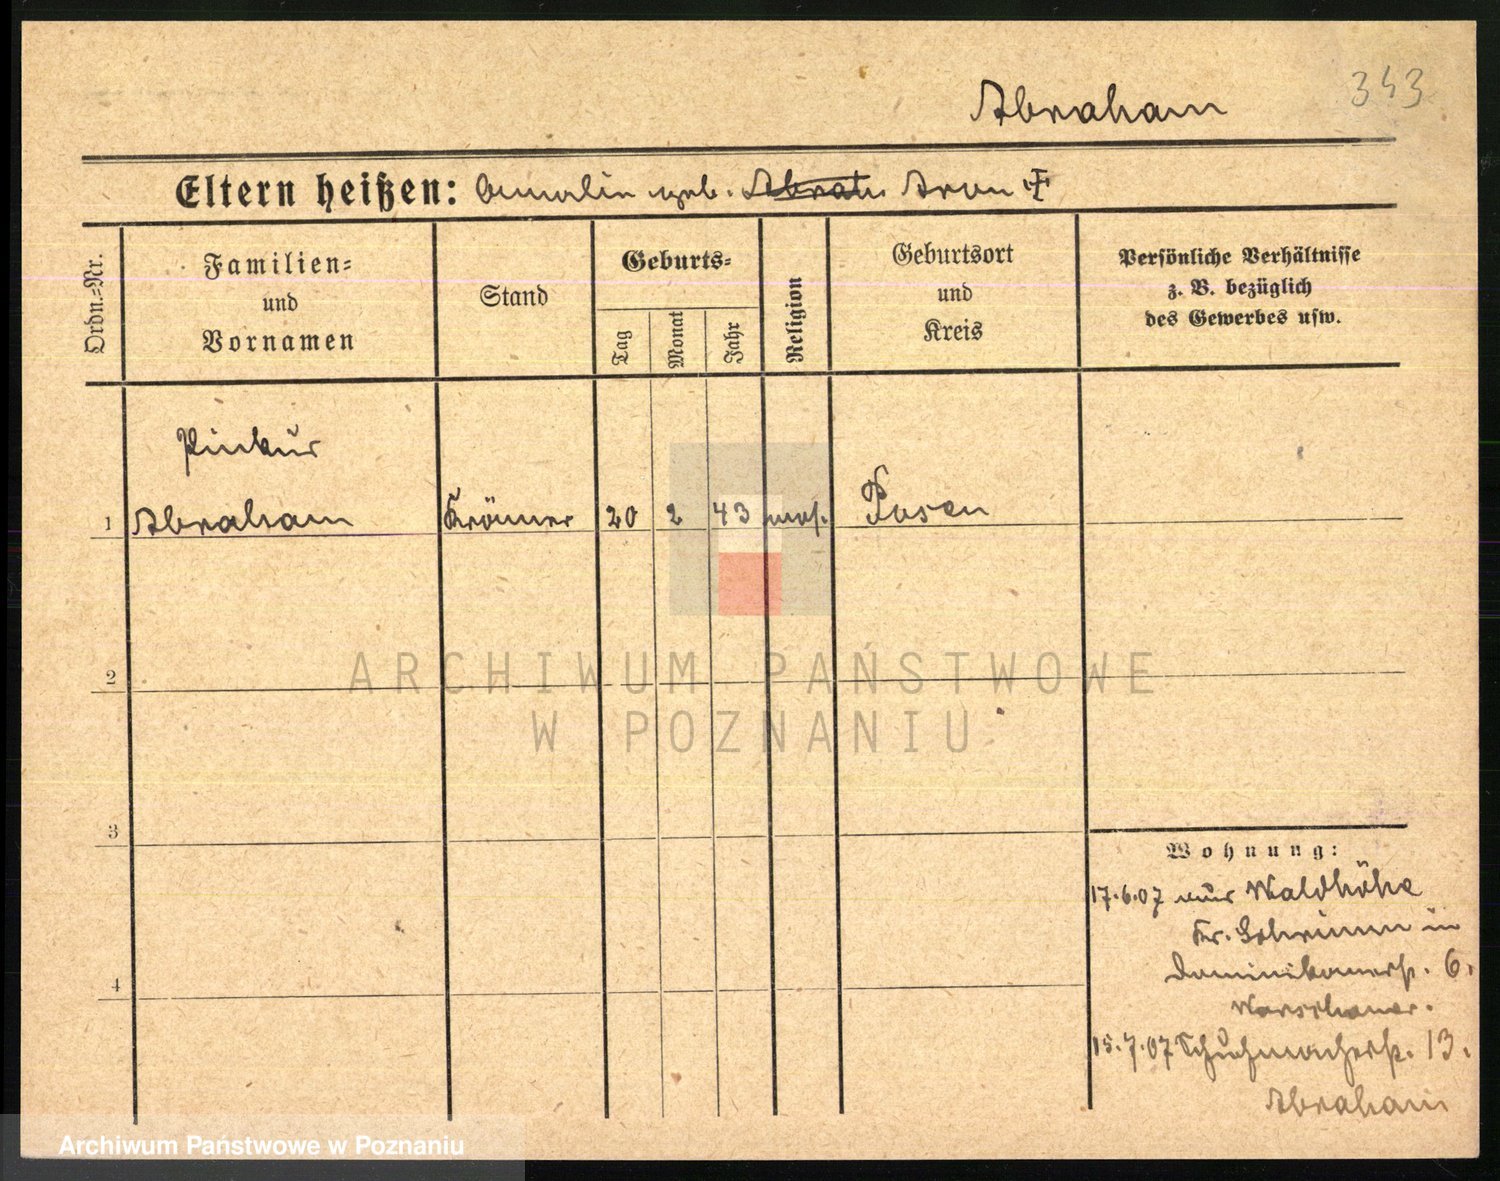 343
Abraham
Eltern heißen: Amalie geb. Aron
Ordn.=Nr.
Familien=
und
Vornamen
Stand
Geburts=
Tag
Monat
Jahr
Religion
Geburtsort
und
Kreis
Persönliche Verhältnisse
z. B. bezüglich
des Gewerbes usw.
Pinkus
1 Abraham Krämer 20 2 43 mos. Posen
2
3
4
Wohnung:
17.6.07 aus Waldhöhe
Kr. in
Dominikanerstr. 6.
Warschauer.
15.7.07 Schuhmacherstr. 13.
Abraham
ARCHIWUM PAŃSTWOWE
W POZNANIU
Archiwum Państwowe w Poznaniu